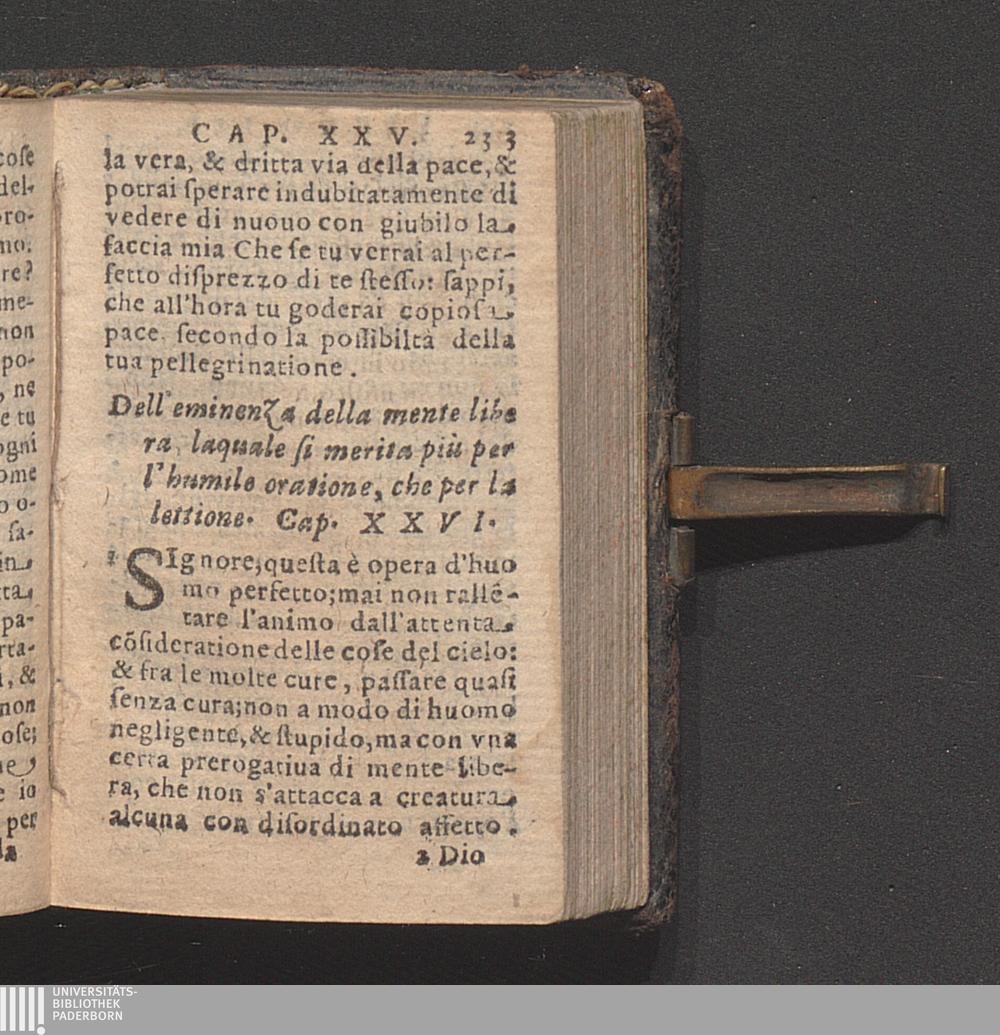 coſe
del-
pro-
mo.
re?
me-
non
po-
, ne
e tu
ogni
ome
o o-
ſa-
in
ta
pa-
rta-
i, &
non
oſe;
e io
per
la
CAP. XXV. 233
la vera, & dritta via della pace, &
potrai ſperare indubitatamente di
vedere di nuouo con giubilo la
faccia mia Che ſe tu verrai al per-
fetto diſprezzo di te ſteſſo: ſappi,
che all'hora tu goderai copioſa
pace. ſecondo la poſſibiltà della
tua pellegrinatione.
Dell'eminenza della mente libe
ra, laquale ſi merita più per
l'humile oratione, che per la
lettione. Cap. XXVI.
1 SIgnore; queſta è opera d'huo
mo perfetto; mai non rallē-
tare l'animo dall'attenta
cōſideratione delle coſe del cielo:
& fra le molte cure, paſſare quaſi
ſenza cura; non a modo di huomo
negligente, & ſtupido, ma con vna
certa prerogatiua di mente libe-
ra, che non s'attacca a creatura
alcuna con diſordinato affetto.
2 Dio
UNIVERSITÄTS-
BIBLIOTHEK
PADERBORN